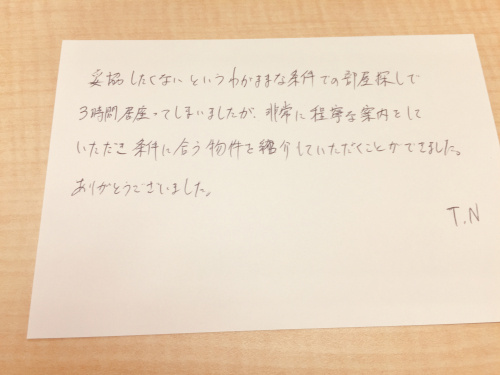 妥協したくないというわがままな条件での部屋探しで
3時間居座ってしまいましたが、非常に丁寧な案内をして
いただき条件に合う物件を紹介していただくことができました。
ありがとうございました。
T.N